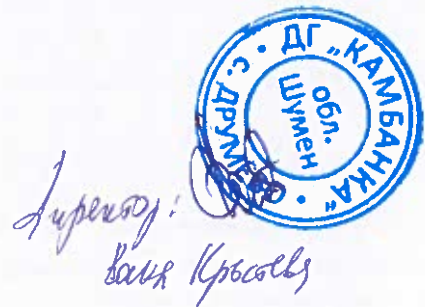 ДГ „КАМБАНКА“ • С. ДРУМЕВО •
обл.
Шумен
Директор:
Ваня Кръстева